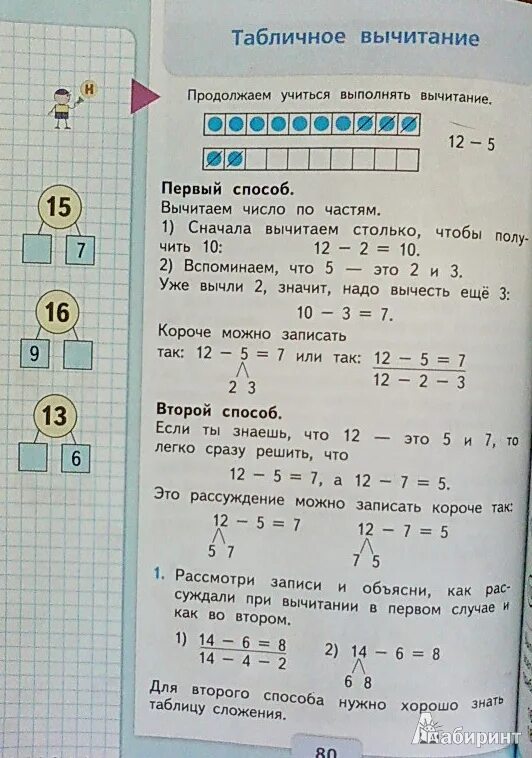 Табличное вычитание
Н
Продолжаем учиться выполнять вычитание.
12 − 5
15
7
16
9
13
6
Первый способ.
Вычитаем число по частям.
1) Сначала вычитаем столько, чтобы полу-
чить 10: 12 − 2 = 10.
2) Вспоминаем, что 5 — это 2 и 3.
Уже вычли 2, значит, надо вычесть ещё 3:
10 − 3 = 7.
Короче можно записать
так: 12 − 5 = 7 или так: 12 − 5 = 7
2 3 12 − 2 − 3
Второй способ.
Если ты знаешь, что 12 — это 5 и 7, то
легко сразу решить, что
12 − 5 = 7, а 12 − 7 = 5.
Это рассуждение можно записать короче так:
12 − 5 = 7 12 − 7 = 5
5 7 7 5
1. Рассмотри записи и объясни, как рас-
суждали при вычитании в первом случае и
как во втором.
1) 14 − 6 = 8 2) 14 − 6 = 8
14 − 4 − 2
6 8
Для второго способа нужно хорошо знать
таблицу сложения.
80
Лабиринт